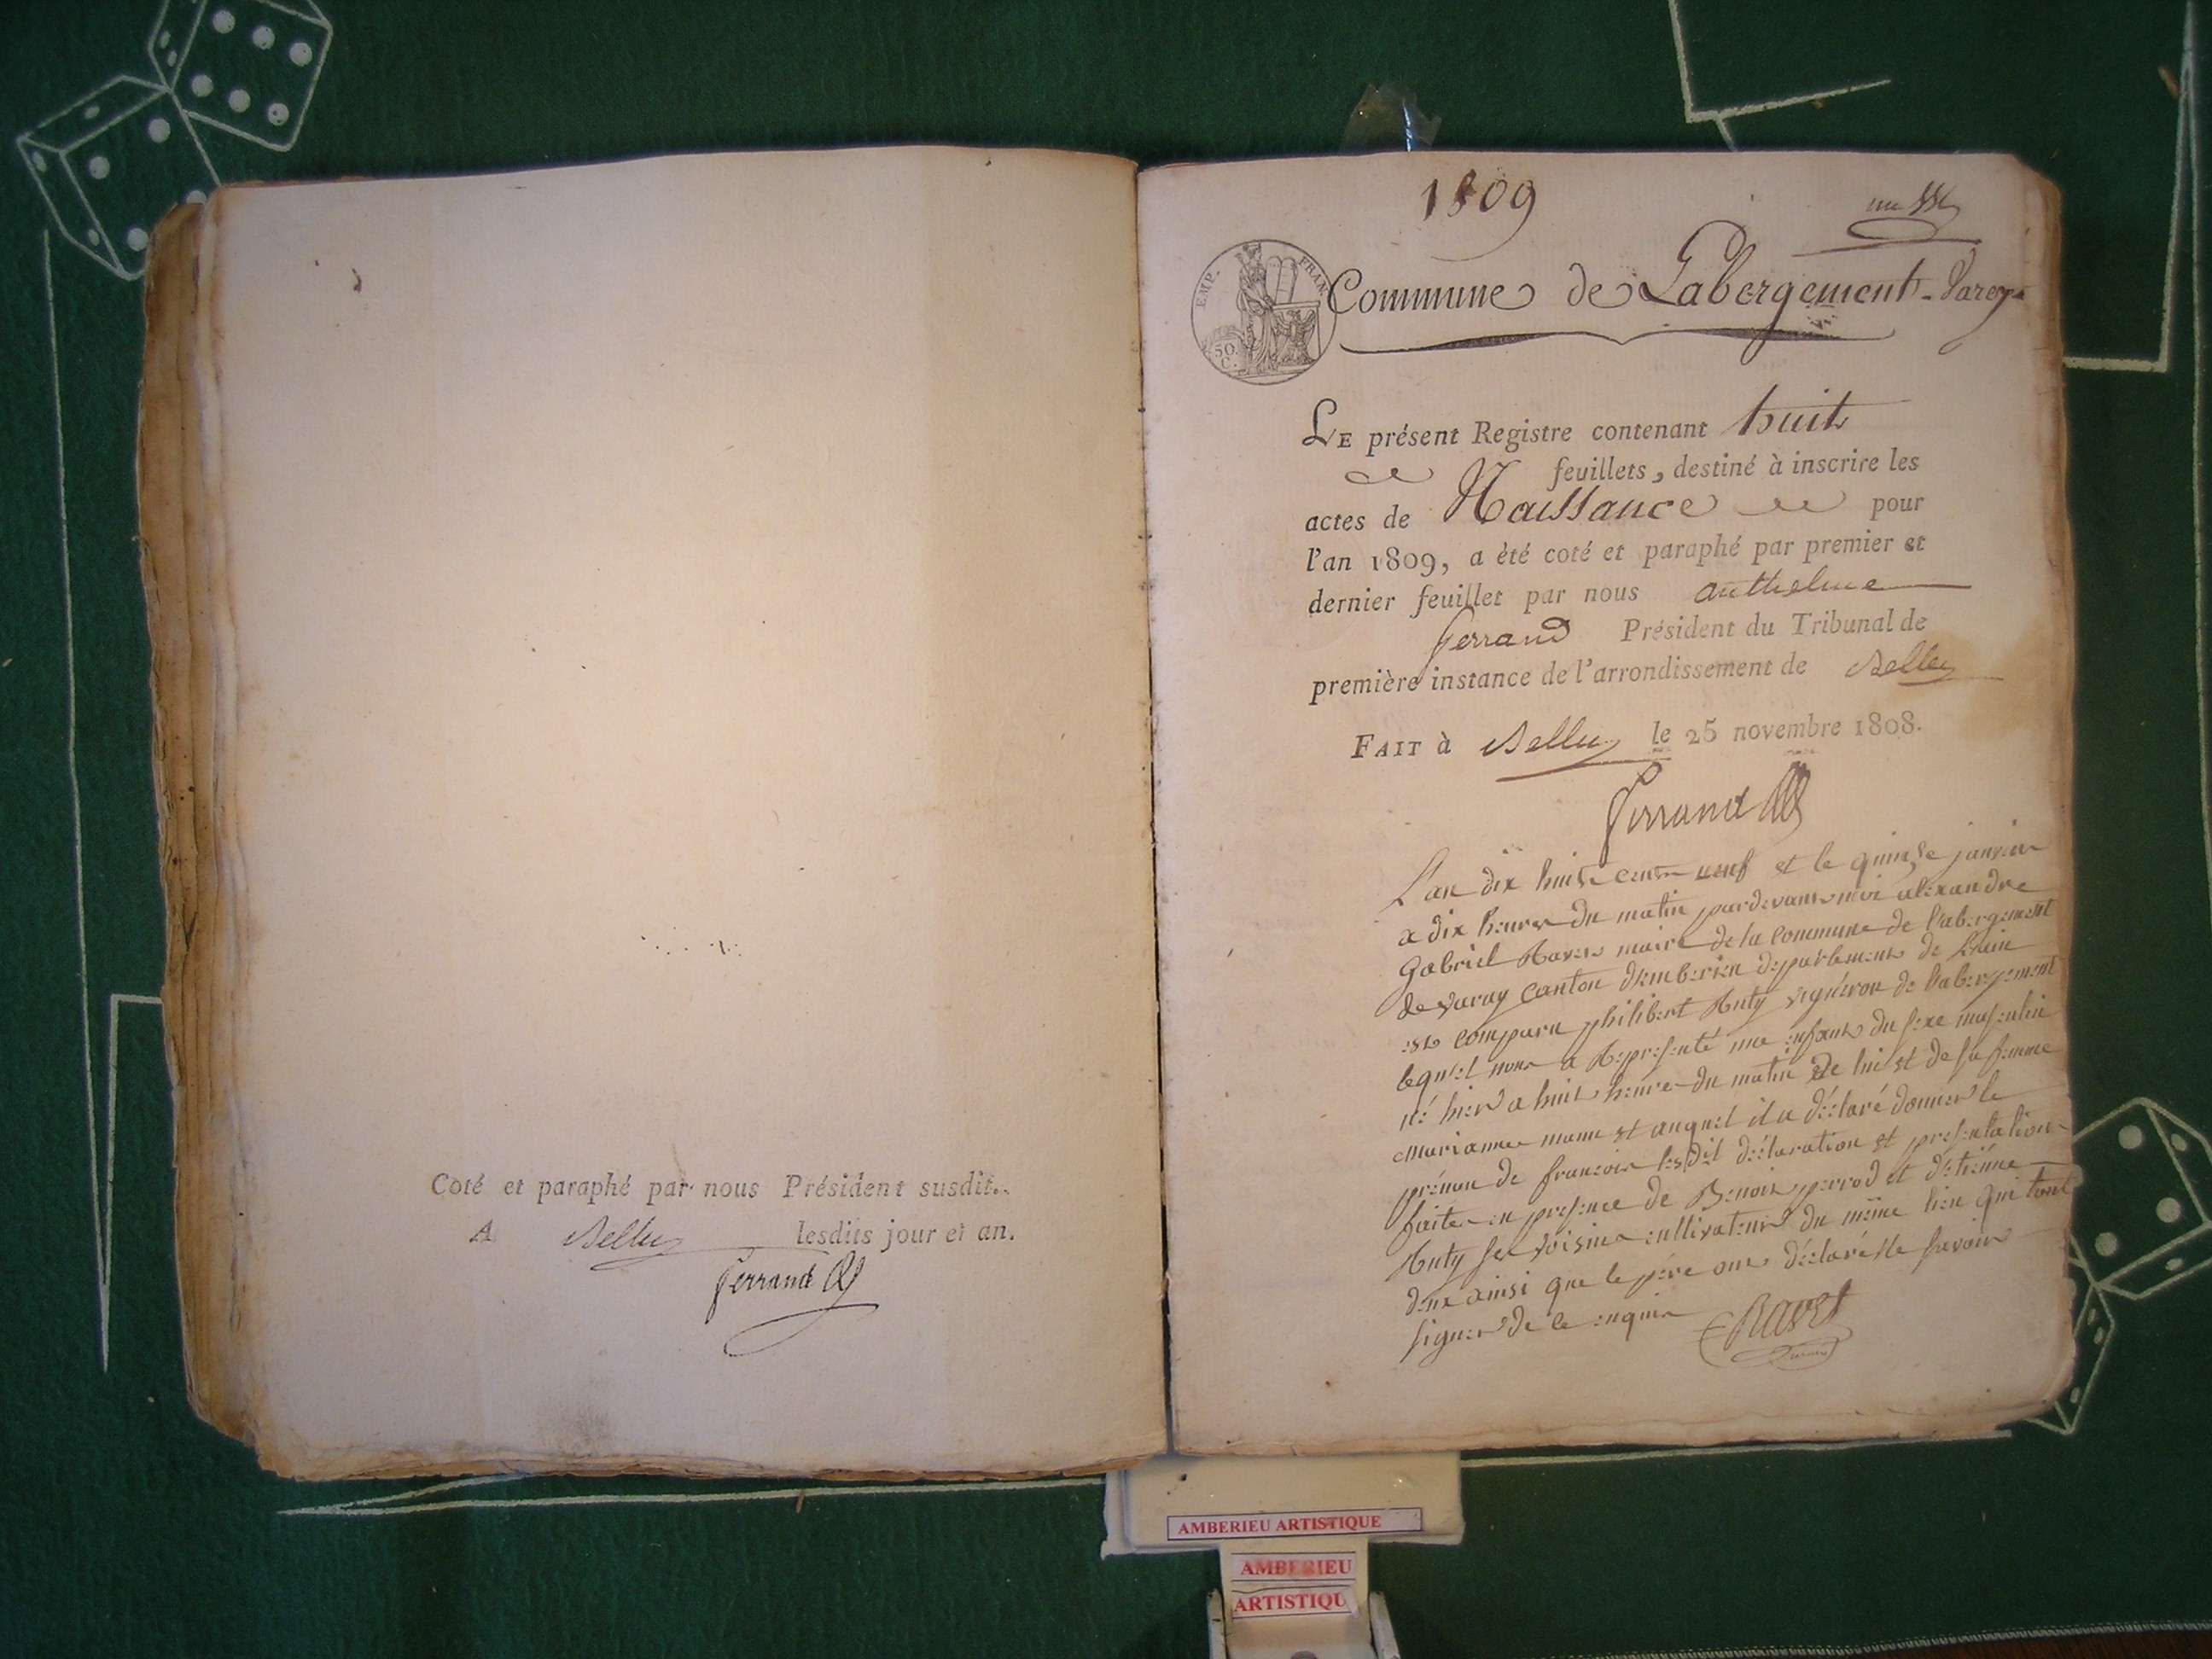 Coté et paraphé par nous Président susdit.
A Belley lesdits jour et an.
Ferrand
1809
Commune de Labergement-Varey
EMP. FRAN.
50.
C.
LE présent Registre contenant huit
feuillets, destiné à inscrire les
actes de Naissance pour
l'an 1809, a èté coté et paraphé par premier et
dernier feuillet par nous anthelme
ferrand Président du Tribunal de
première instance de l'arrondissement de Belley
FAIT à Belley le 25 novembre 1808.
Ferrand
L'an dix huit cent neuf et le quinze janvier
a dix heures du matin pardevant moi alexandre
Gabriel Ravet maire de la commune de l'abergement
de varey canton d'amberieu departement de l'ain
est comparu philibert Huty vigneron de l'abergement
lequel nous a Représenté un enfant du sexe masculin
né hier a huit heure du matin de lui et de sa femme
marianne et auquel il a déclaré donner le
prénom de francois lesdit déclaration et presentation
faite en presence de Benoit perrod et d'etienne
Huty ses voisins cultivateurs du même lieu qui tout
deux ainsi que le père ont déclaré ne savoir
signer de ce enquis
Ravet
AMBERIEU ARTISTIQUE
AMBERIEU
ARTISTIQU